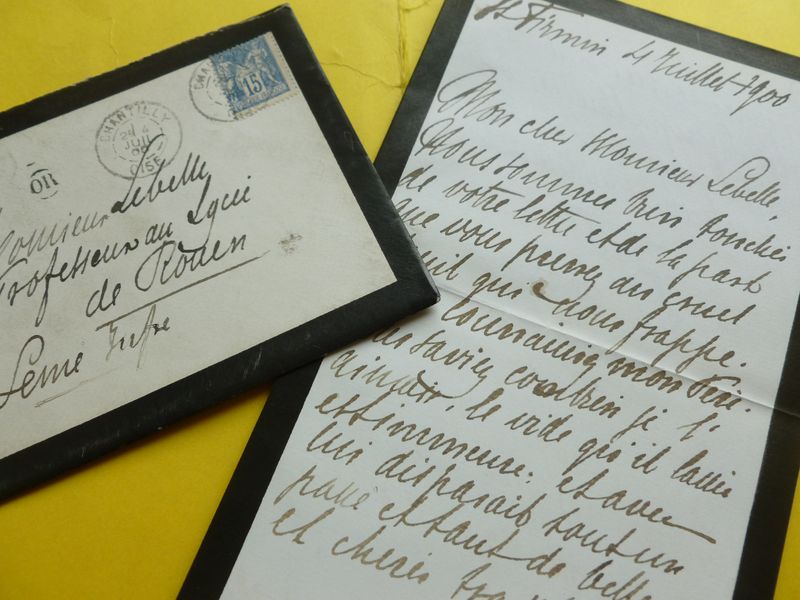 CHANTILLY
JUIL
OISE
15
OR
Monsieur Lebelle
Professeur au Lycée
de Rouen
Seine Infre
St Firmin 4 Juillet 1900
Mon cher Monsieur Lebelle,
Nous sommes bien touchés
de votre lettre et de la part
que vous prenez au cruel
deuil qui nous frappe.
mon Père.
Vous saviez combien je l'
aimais, le vide qu'il laisse
est immense; et avec
lui disparaît tout un
passé et tant de belles
et chères